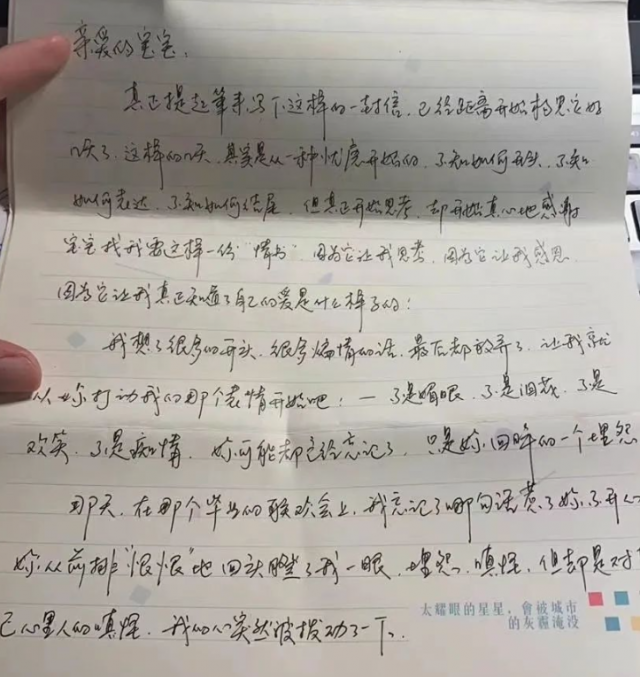 亲爱的宝宝，
真正提起笔来写下这样的一封信，已经距离开始构思它好
几天了，这样的几天，其实是从一种忧虑开始的，不知如何开头，不知
如何表达，不知如何结尾，但真正开始思考，却开始真心地感谢
宝宝找我要这样一份“情书”，因为它让我思考，因为它让我感恩，
因为它让我真正知道了自己的爱是什么样子的：
我想了很多的开头，很多煽情的话，最后都放弃了，让我就
从你打动我的那个表情开始吧：— 不是媚眼，不是泪花，不是
欢笑，不是痴情，你可能都已经忘记了，只是你回眸的一个埋怨
那天，在那个毕业的联欢会上，我忘记了哪句话惹了你不开心
你从前排“恨恨”地回头瞪了我一眼，埋怨，嗔怪，但却是对
己心里人的嗔怪，我的心突然被拨动了一下。
太耀眼的星星，會被城市
的灰霾淹没